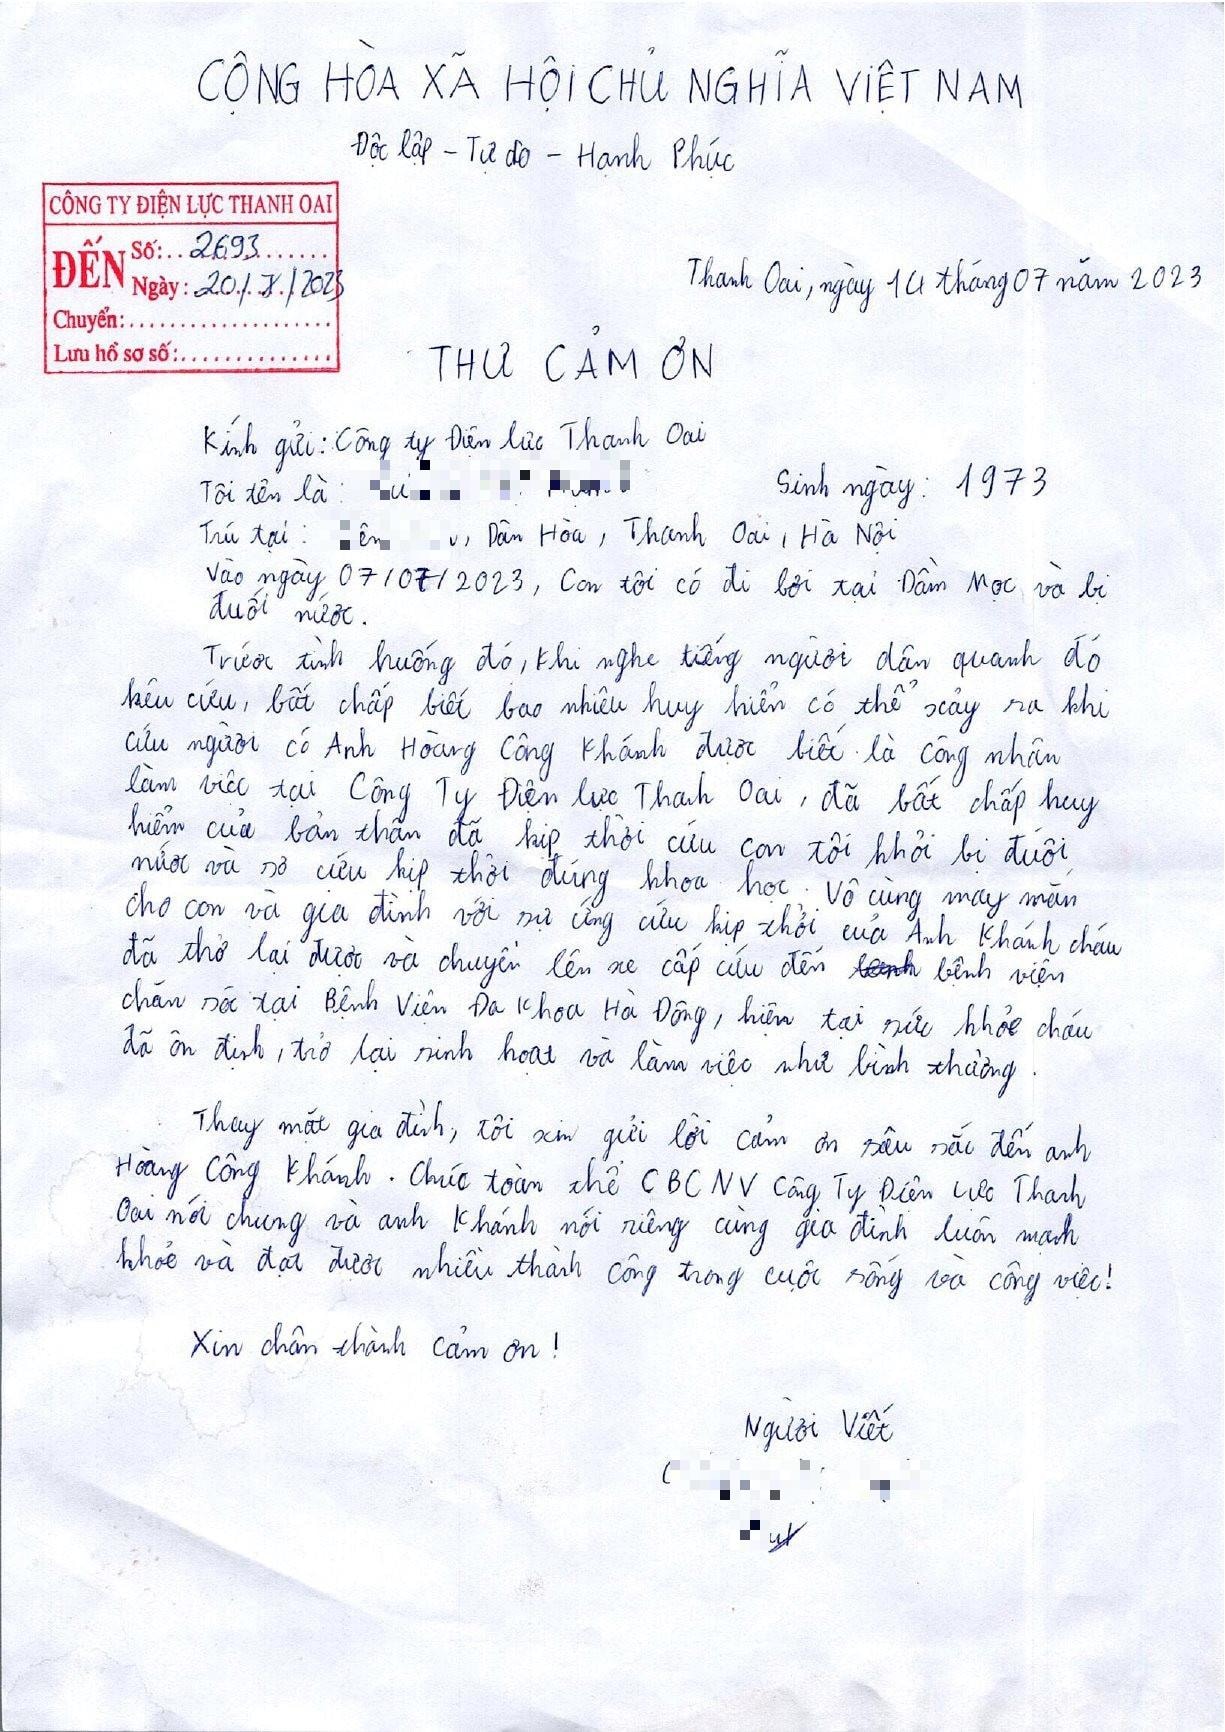 CỘNG HÒA XÃ HỘI CHỦ NGHĨA VIỆT NAM
Độc lập - Tự do - Hạnh Phúc
CÔNG TY ĐIỆN LỰC THANH OAI
ĐẾN Số: 2693
Ngày: 20/7/2023
Chuyển:
Lưu hồ sơ số:
Thanh Oai, ngày 14 tháng 07 năm 2023
THƯ CẢM ƠN
Kính gửi: Công ty Điện lực Thanh Oai
Tôi tên là: Sinh ngày: 1973
Trú tại: , Dân Hòa, Thanh Oai, Hà Nội
Vào ngày 07/07/2023, Con tôi có đi bơi tại Đầm Mọc và bị
đuối nước.
Trước tình huống đó, khi nghe tiếng người dân quanh đó
kêu cứu, bất chấp biết bao nhiêu huy hiển có thể xảy ra khi
cứu người có Anh Hoàng Công Khánh được biết là công nhân
làm việc tại Công Ty Điện lực Thanh Oai, đã bất chấp huy
hiểm của bản thân đã kịp thời cứu con tôi khỏi bị đuối
nước và sơ cứu kịp thời đúng khoa học. Vô cùng may mắn
cho con và gia đình với sự ứng cứu kịp thời của Anh Khánh cháu
đã thở lại được và chuyển lên xe cấp cứu đến bệnh viện
chăn sóc tại Bệnh Viện Đa Khoa Hà Đông, hiện tại sức khỏe cháu
đã ổn định, trở lại sinh hoạt và làm việc như bình thường.
Thay mặt gia đình, tôi xin gửi lời cảm ơn sâu sắc đến anh
Hoàng Công Khánh. Chúc toàn thể CBCNV Công Ty Điện Lực Thanh
Oai nói chung và anh Khánh nói riêng cùng gia đình luôn mạnh
khỏe và đạt được nhiều thành công trong cuộc sống và công việc!
Xin chân thành cảm ơn!
Người Viết